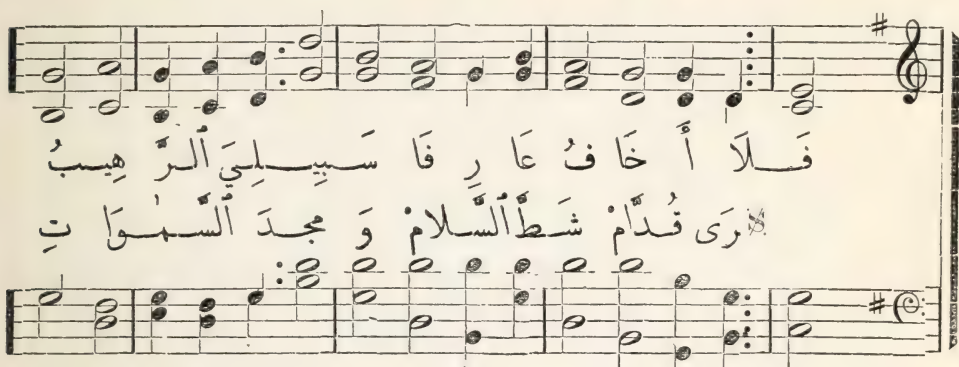 فَلَا أَخَافُ عَارِفَا سَبِيلِيَ ٱلرَّهِيبُ
قُدَّامْ شَطَّ ٱلسَّلَامْ وَ مَجدَ ٱلسَّمٰوَاتِ